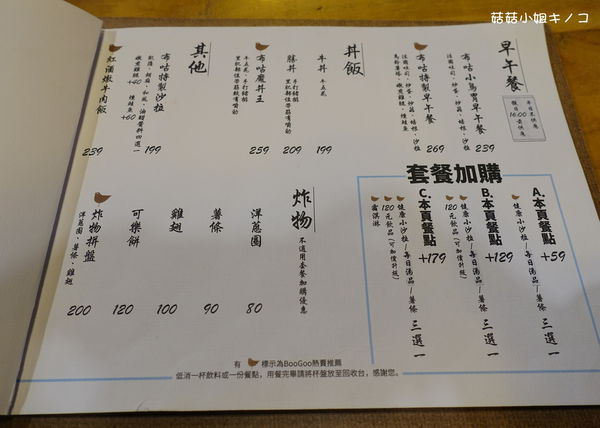 菇菇小姐キノコ
早午餐
平日不供應
假日16:00後供應
布咕小鳥胃早午餐
239
布咕特製早午餐
269
丼飯
牛丼
牛五花
199
豚丼
手打豬排
209
布咕魔丼王
259
其他
布咕特製沙拉
199
嫩煎雞腿+40
燻鮭魚+60
紅酒燉牛肉飯
239
套餐加購
A.本頁餐點
+59
健康小沙拉/每日湯品/薯條 三選一
B.本頁餐點
+129
健康小沙拉/每日湯品/薯條 三選一
120元飲品(可加價升級)
C.本頁餐點
+179
健康小沙拉/每日湯品/薯條 三選一
120元飲品(可加價升級)
霜淇淋
炸物
不適用套餐加購優惠
洋蔥圈
80
薯條
90
雞翅
100
可樂餅
120
炸物拼盤
洋蔥圈、薯條、雞翅
200
有 標示為BooGoo熱賣推薦
低消一杯飲料或一份餐點，用餐完畢請將杯盤放至回收台，感謝您。